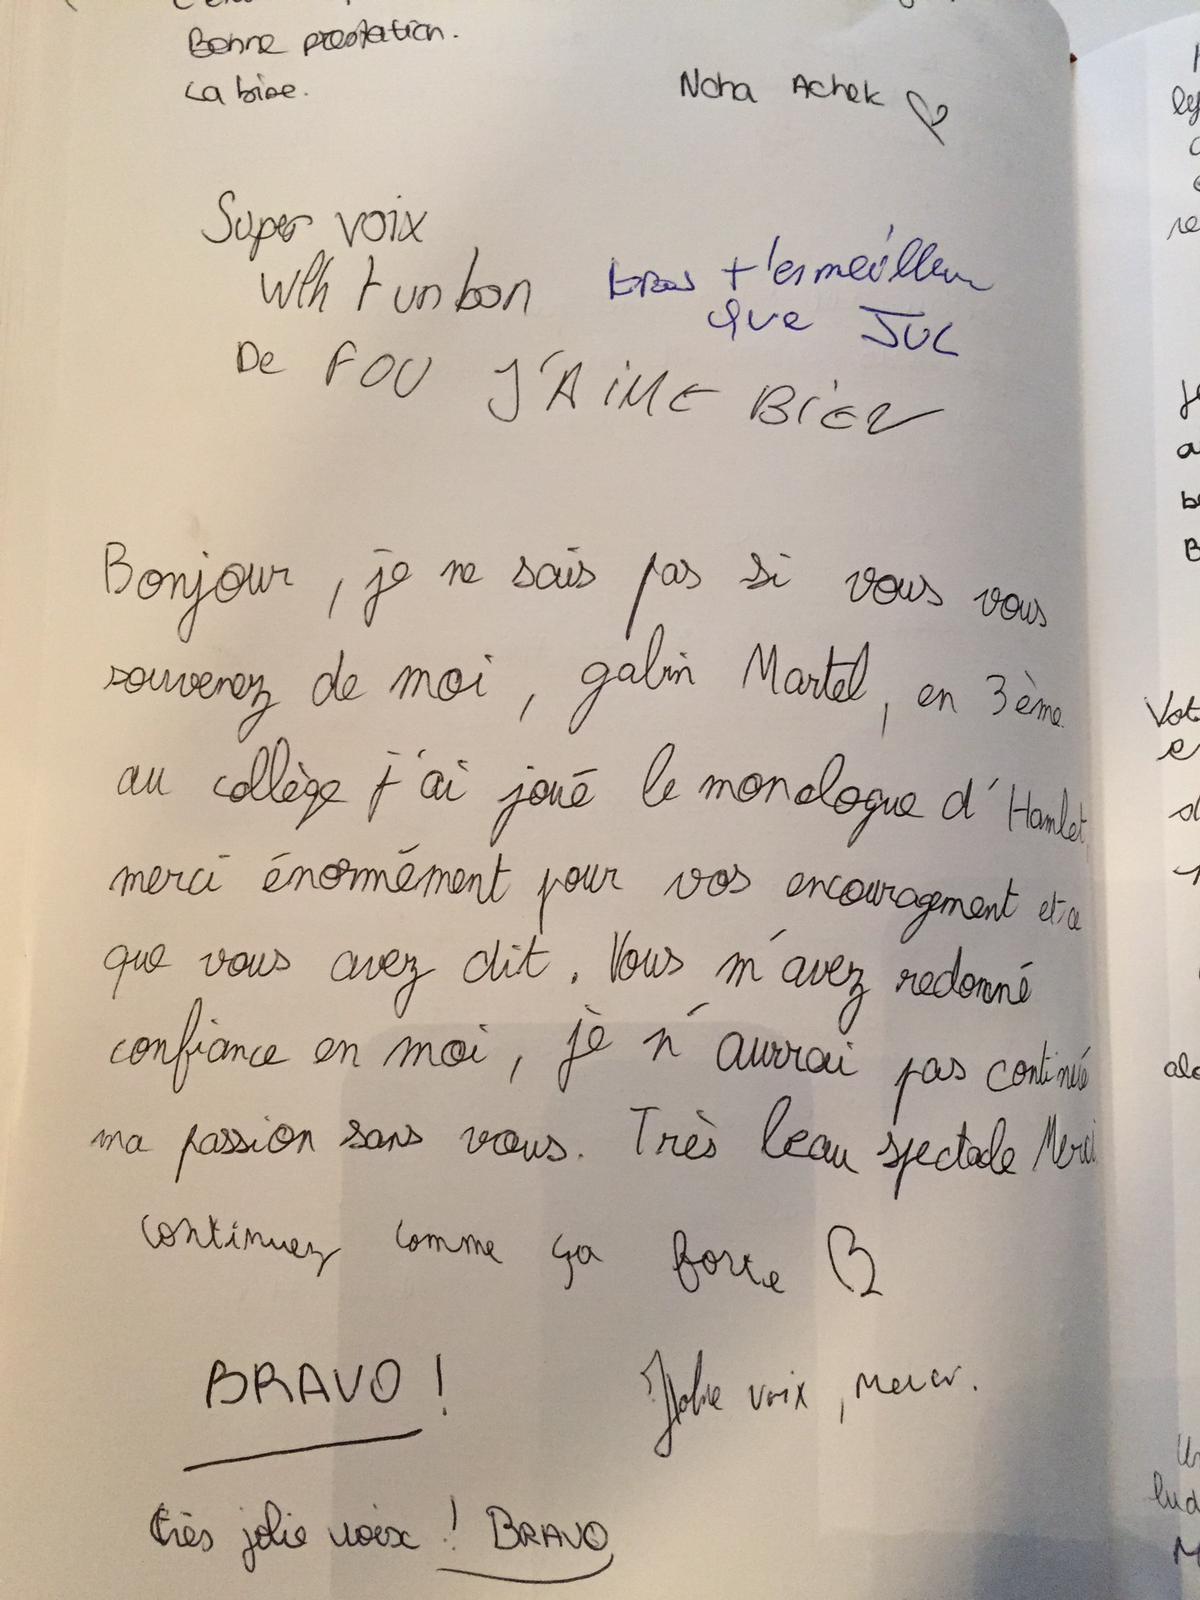 Bonne prestation.
La bise.
Noha Achek
Super voix
Wlh t un bon
De FOU J'AIME BIEN
t'es meilleur
que JUL
Bonjour, je ne sais pas si vous vous
souvenez de moi, gabin Martel, en 3ème
au collège j'ai joué le monologue d'Hamlet,
merci énormément pour vos encouragement et ce
que vous avez dit. Vous m'avez redonné
confiance en moi, je n'aurrai pas continué
ma passion sans vous. Très beau spectacle Merci
continuez comme ça force
BRAVO !
Jolie voix, merci.
très jolie voix ! BRAVO